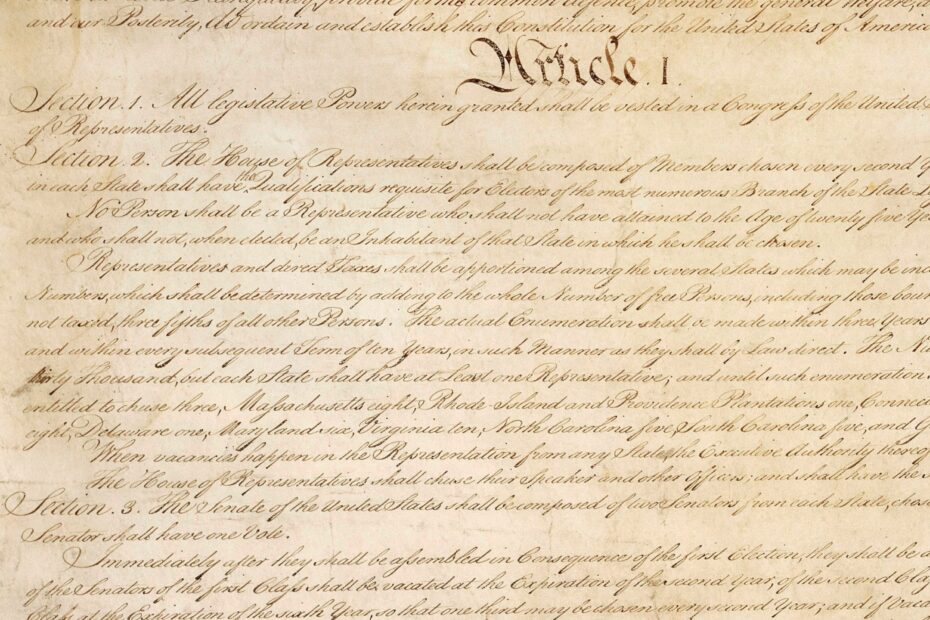 and our Posterity, do ordain and establish this Constitution for the United States of America
Article. I.
Section. 1. All legislative Powers herein granted shall be vested in a Congress of the United
of Representatives.
Section. 2. The House of Representatives shall be composed of Members chosen every second
in each State shall have the Qualifications requisite for Electors of the most numerous Branch of the State
No Person shall be a Representative who shall not have attained to the Age of twenty five
and who shall not, when elected, be an Inhabitant of that State in which he shall be chosen.
Representatives and direct Taxes shall be apportioned among the several States which may be
Numbers, which shall be determined by adding to the whole Number of free Persons, including those
not taxed, three fifths of all other Persons. The actual Enumeration shall be made within three Years
and within every subsequent Term of ten Years, in such Manner as they shall by Law direct. The
thirty Thousand, but each State shall have at Least one Representative; and until such enumeration
entitled to chuse three, Massachusetts eight, Rhode-Island and Providence Plantations one,
eight, Delaware one, Maryland six, Virginia ten, North Carolina five, South Carolina five, and
When vacancies happen in the Representation from any State, the Executive Authority
The House of Representatives shall chuse their Speaker and other Officers; and shall have the
Section. 3. The Senate of the United States shall be composed of two Senators from each State,
Senator shall have one Vote.
Immediately after they shall be assembled in Consequence of the first Election, they shall be
of the Senators of the first Class shall be vacated at the Expiration of the second Year, of the second
Class at the Expiration of the sixth Year, so that one third may be chosen every second Year; and if